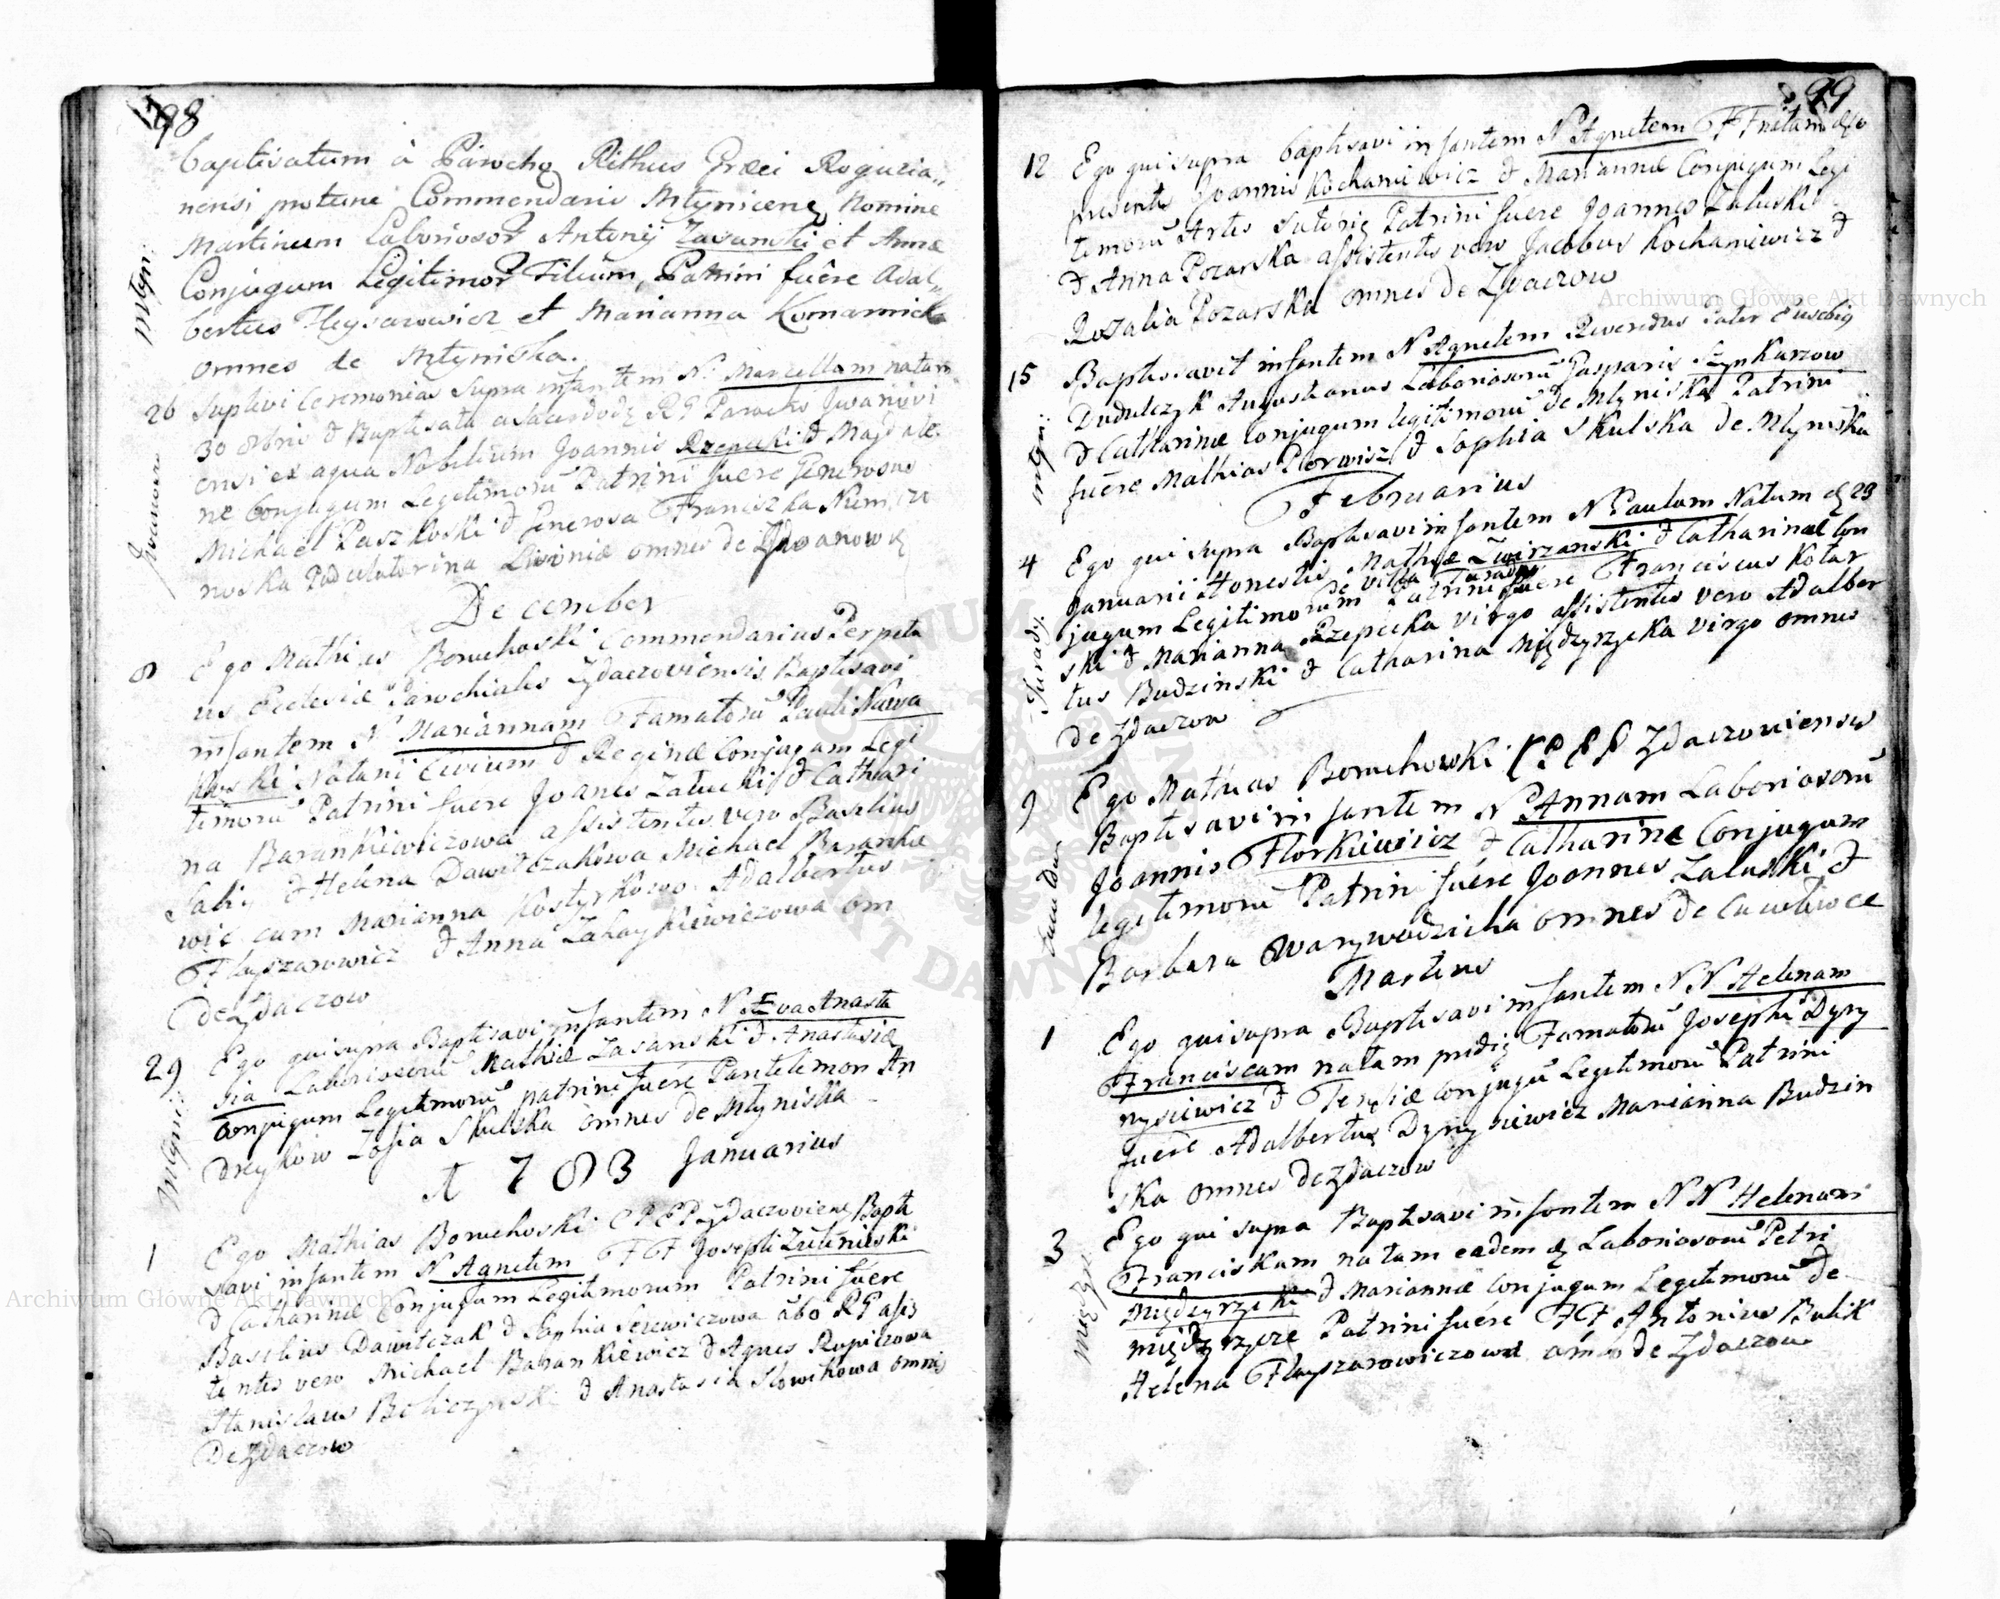 98
baptisatum à Parocho Rithus Græci Roguzia„
nensi protunc Commendario Mlynicene, Nomine
Martinum Laboriosor Antonij Zasanski et Annæ
Conjugum Legitimor Filium, Patrini fuêre Adal„
bertus Fleysarowicz et Marianna Komarnicka
omnes de Młyniska.
Młyn:
26 Suplevi Ceremonias Supra infantem N. Marcellam natam
30 8bris & Baptisata a Sacerdode RG Parocho Iwanovi
ensi ex aqua Nobilium Joannis Rzepecki & Magdale
ne Conjugum Legitimorũ Patrini fuere Generosus
Michael Paszkoski & Generosa Franciszka Niemczu
noska Podczia Livoniæ omnes de
December
8 Ego Mathias Boruchoski Commendarius Perpetu
us Eclesiæ Parochialis Zydaczoviensis Baptisavi
infantem N Mariannam Famatorũ Pauli
Notarii Civium & Reginæ Conjugum Legi
timorũ Patrini fuere Joanes Załucki & Cathari
na Barankiewiczowa assistentes vero Basilius
Saliy & Helena Dawidczakowa Michael Barankie
wic cum Marianna Kostyrkowa Adalbertus
Flayszarowicz & Anna Zahaykiewiczowa om
de Zydaczow
29 Ego qui supra Baptisavi infantem N Eva Anasta
sia Laboriosorũ Mathiæ Zasanski & Anastasiæ
Conjugum Legitimorũ patrini fuére Pantelimon An
dreykow Zofia Skulska omnes de Młyniska
Młynis:
A 783 Januarius
1 Ego Mathias Boruchoski CPEP Zydaczoviens Bapti
savi infantem N Agnetem FF Josephi
& Catharinæ Conjugum Legitimorum Patrini fuere
Basilius Dawidczak & Sophia Serewiczowa abo RG assis
tentes vero Michael Barankiewicz & Agnes Kupiczowa
Stanislaus & Anastasia Słowikowa omnes
De Zydaczow
99
12 Ego qui supra baptisavi infantem N Agnetem FF natam
presentis Joannis Kochaniewicz & Mariannæ Conjugum Legi
timorũ Artis Sutoriæ Patrini fuere Joannes Zaluski
& Anna Pozarska assistentes vero Jacobus Kochaniewicz &
Rozalia Pozarska omnes de Zydaczow
15 Baptisavit infantem N Agnetem Reverendus Pater Eusebig
Dudulczyk Augustianus Laboriosorũ Gasparis Szynkarzow
& Catharinæ Conjugum legitimorũ de Młyniska Patrini
fuére Mathias Perwisz & Sophia Skulska de Młyniska
Młyni:
Februarius
4 Ego qui supra Baptisavi infantem N Paulum Natum 29
Januarii Honestis Mathiæ Zwirzanski & Catharinæ Con
de villa Turady
jugum Legitimorum Patrini fuere Franciscus Kotar
ski & Marianna Rzepecka virgo assistentes vero Adalber
tus Budzinski & Catharina Międzyrzecka virgo omnes
de Zydaczow
Turady
9 Ego Mathias Boruchowski CPEP Zydaczoviensis
Baptisavi infantem N Annam Laboriosorũ
Joannis Florkiewicz & Catharinæ Conjugum
legitimorũ Patrini fuére Joannes Zaluski &
Barbara Warywodzicha omnes de
Martius
1 Ego qui supra Baptisavi infantem NN Helenam
Franciscam natam pridie Famatorũ Josephi Dyny
nysiewicz & Teresiæ Conjugũ Legitimorũ Patrini
fuere Adalbertus Marianna Budzin
ska omnes de Zydaczow
3 Ego qui supra Baptisavi infantem NN Helenam
Franciskam natam eadem Laboriosorũ Petri
Międzyrzecki & Mariannæ Conjugum Legitimorũ de
Międzyrzecze Patrini fuére FF Antonius Bulik
Helena Flayszarowiczowa ambo de Zydaczow
Archiwum Główne Akt Dawnych
Archiwum Główne Akt Dawnych